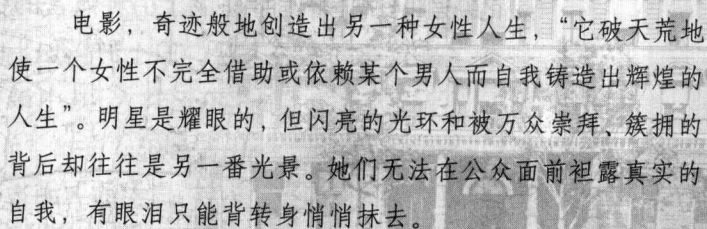 电影，奇迹般地创造出另一种女性人生，“它破天荒地
使一个女性不完全借助或依赖某个男人而自我铸造出辉煌的
人生”。明星是耀眼的，但闪亮的光环和被万众崇拜、簇拥的
背后却往往是另一番光景。她们无法在公众面前袒露真实的
自我，有眼泪只能背转身悄悄抹去。